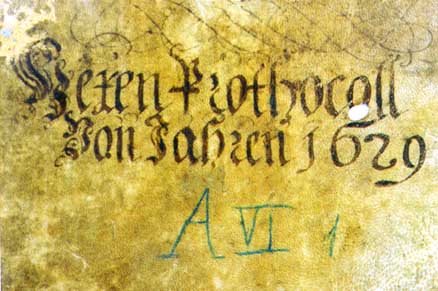 Hexen Prothocoll
Von Jahren 1629
A VI 1